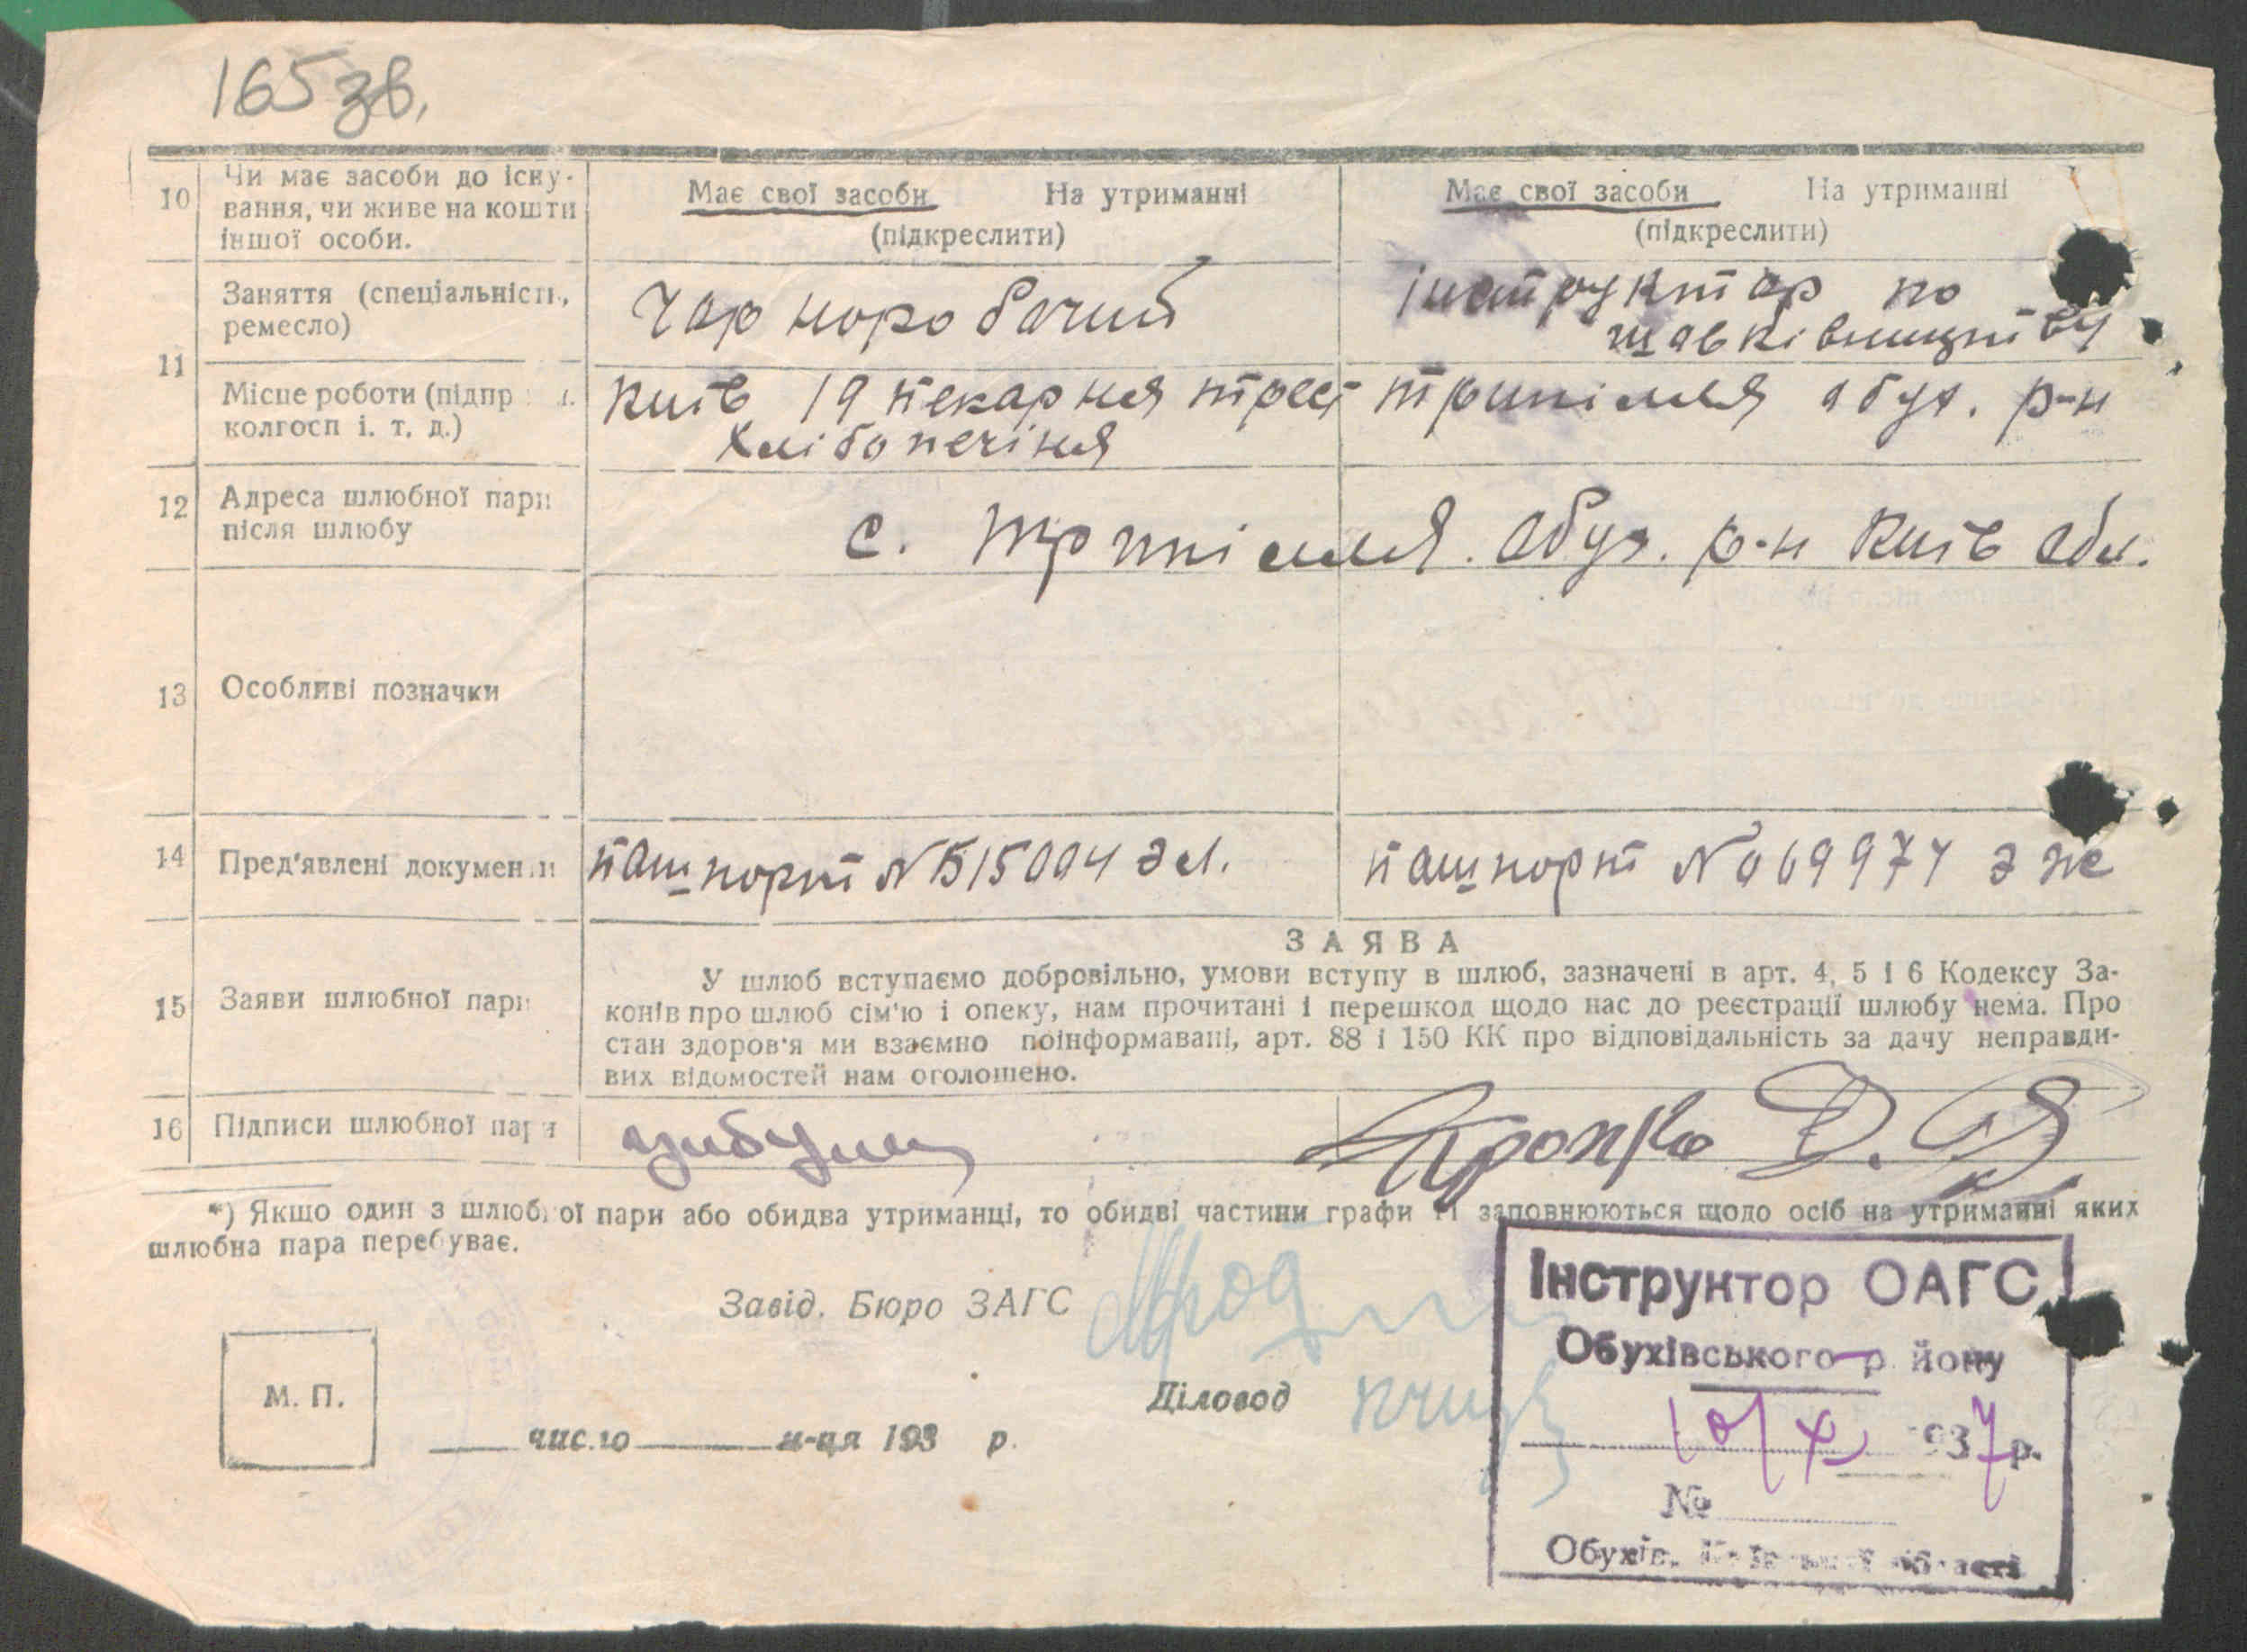 165 зв.
10
Чи має засоби до існу-
вання, чи живе на кошти
іншої особи.
Має свої засоби На утриманні
(підкреслити)
Має свої засоби На утриманні
(підкреслити)
11
Заняття (спеціальність,
ремесло)
Чорноробочий
інструктор по
шовківництву
Місце роботи (підпр
колгосп і. т. д.)
Київ 19 пекарня трест
хлібопечіня
Трипілля обух. р-н
12
Адреса шлюбної пари
після шлюбу
с. Трипілля. Обух. р-н Київ обл.
13
Особливі позначки
14
Пред'явлені документи
пашпорт № 515004 эл.
пашпорт № 069974 э же
15
Заяви шлюбної пари
ЗАЯВА
У шлюб вступаємо добровільно, умови вступу в шлюб, зазначені в арт. 4, 5 і 6 Кодексу За-
конів про шлюб сім'ю і опеку, нам прочитані і перешкод щодо нас до реєстрації шлюбу нема. Про
стан здоров'я ми взаємно поінформавані, арт. 88 і 150 КК про відповідальність за дачу неправди-
вих відомостей нам оголошено.
16
Підписи шлюбної пари
*) Якщо один з шлюбної пари або обидва утриманці, то обидві частини графи 11 заповнюються щодо осіб на утриманні яких
шлюбна пара перебуває.
Завід. Бюро ЗАГС
М. П.
Діловод
число м-ця 193 р.
Інструктор ОАГС
Обухівського р йону
10/X 1937 р.
№
Обухів, Київської області